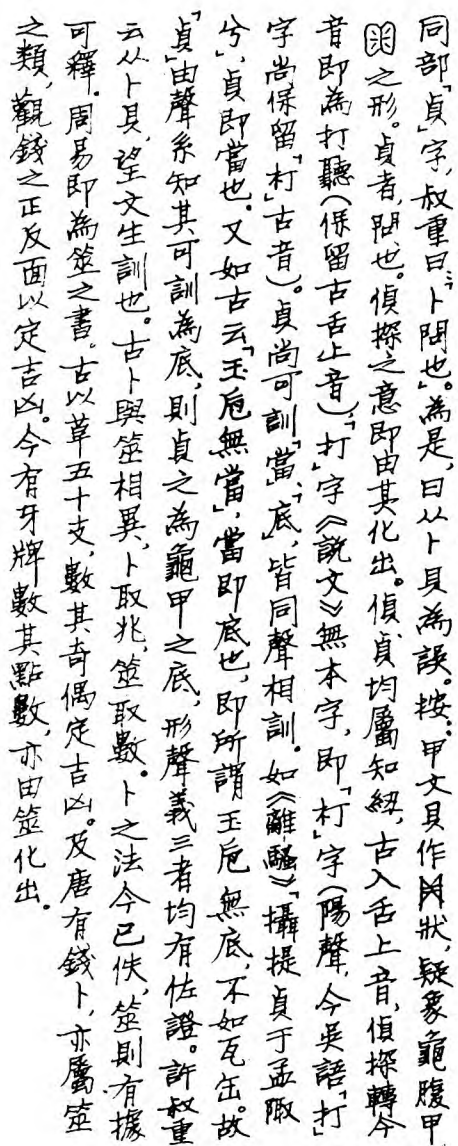 同部「貞」字，叔重曰：「卜問也。」為是，曰从卜貝為誤。按：甲文貝作狀，疑象龜腹甲
之形。貞者，問也。偵探之意即由其化出。偵貞均屬知紐，古入舌上音，偵探轉今
音即為打聽（保留古舌上音），「打」字《說文》無本字，即「朾」字（陽聲，今吳語「打」
字尚保留「朾」古音）。貞尚可訓「當」、「底」，皆同聲相訓。如《離騷》「攝提貞于孟陬
兮」，貞即當也。又如古云「玉卮無當」，當即底也，即所謂玉卮無底，不如瓦缶。故
「貞」由聲系知其可訓為底，則貞之為龜甲之底，形聲義三者均有佐證。許叔重
云从卜具，望文生訓也。古卜與筮相異，卜取兆，筮取數。卜之法今已佚，筮則有據
可釋。周易即為筮之書。古以草五十支，數其奇偶定吉凶。及唐有錢卜，亦屬筮
之類，觀錢之正反面以定吉凶。今有牙牌數其點數，亦由筮化出。